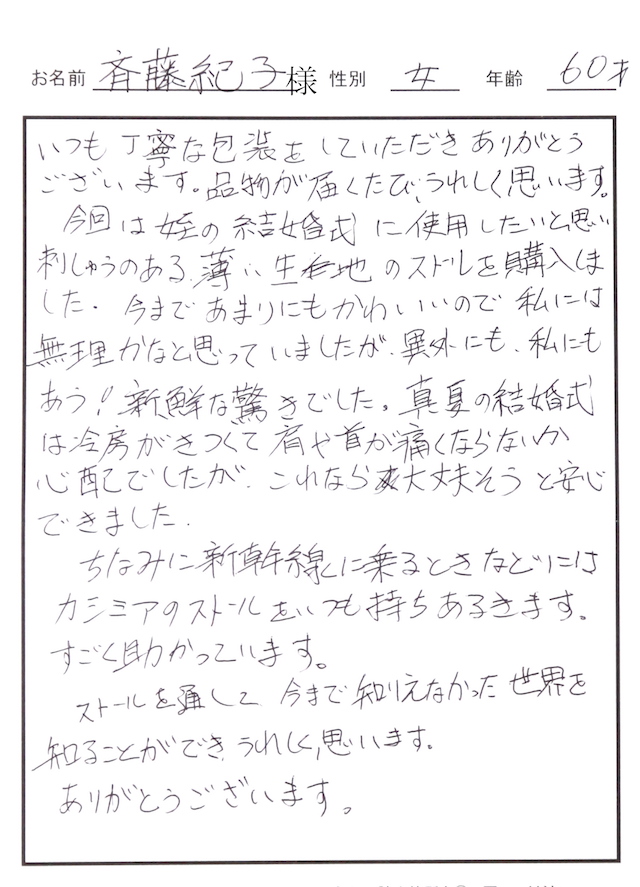 お名前 斉藤紀子様 性別 女 年齢 60才
いつも丁寧な包装をしていただきありがとう
ございます。品物が届くたび、うれしく思います。
今回は姪の結婚式に使用したいと思い
刺しゅうのある、薄い生地のストールを購入しま
した。今まであまりにもかわいいので私には
無理かなと思っていましたが、異外にも、私にも
あう!新鮮な驚きでした。真夏の結婚式
は冷房がきつくて肩や首が痛くならないか
心配でしたが、これなら大丈夫そうと安心
できました。
ちなみに新幹線に乗るときなどには
カシミアのストールをいつも持ちあるきます。
すごく助かっています。
ストールを通して、今まで知りえなかった世界を
知ることができ、うれしく思います。
ありがとうございます。